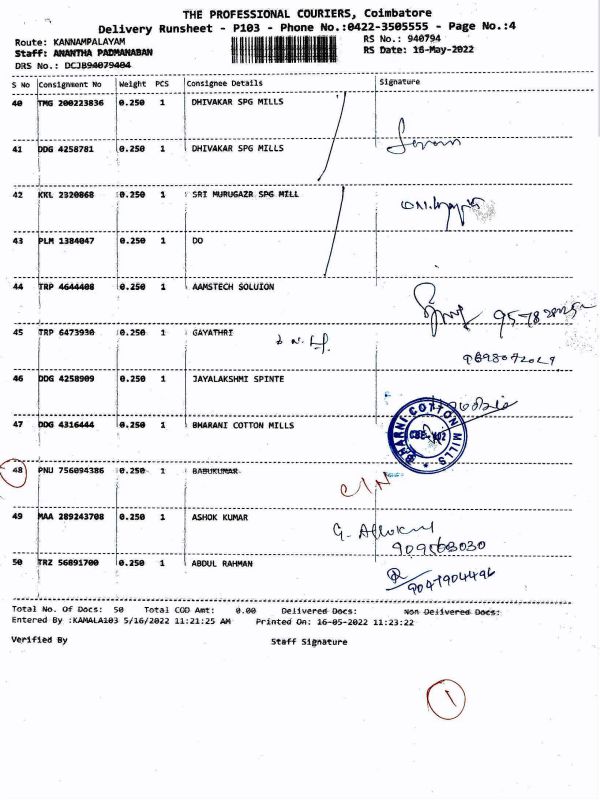 THE PROFESSIONAL COURIERS, Coimbatore
Delivery Runsheet - P103 - Phone No.:0422-3505555 - Page No.:4
Route: KANNAMPALAYAM RS No.: 940794
Staff: ANANTHA PADMANABAN RS Date: 16-May-2022
DRS No.: DCJB94079404
S No Consignment No Weight PCS Consignee Details Signature
40 TMG 200223836 0.250 1 DHIVAKAR SPG MILLS
41 DDG 4258781 0.250 1 DHIVAKAR SPG MILLS
42 KKL 2320868 0.250 1 SRI MURUGAZR SPG MILL
43 PLM 1384047 0.250 1 DO
44 TRP 4644408 0.250 1 AAMSTECH SOLUION
45 TRP 6473930 0.250 1 GAYATHRI
46 DDG 4258909 0.250 1 JAYALAKSHMI SPINTE
47 DDG 4316444 0.250 1 BHARANI COTTON MILLS
BHARNI COTTON MILLS
48 PNU 756094386 0.250 1 BABUKUMAR
C/N
49 MAA 289243708 0.250 1 ASHOK KUMAR
50 TRZ 56891700 0.250 1 ABDUL RAHMAN
9047904496
Total No. Of Docs: 50 Total COD Amt: 0.00 Delivered Docs: Non Delivered Docs:
Entered By :KAMALA103 5/16/2022 11:21:25 AM Printed On: 16-05-2022 11:23:22
Verified By Staff Signature
1